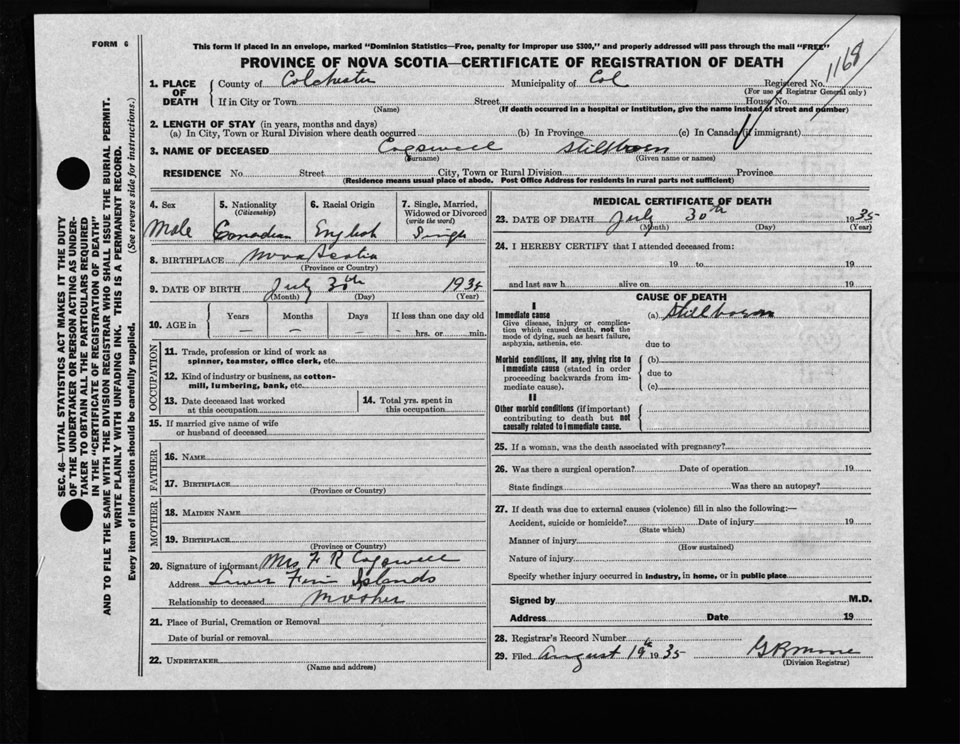 FORM 6
This form if placed in an envelope, marked "Dominion Statistics—Free, penalty for improper use $300," and properly addressed will pass through the mail "FREE"
PROVINCE OF NOVA SCOTIA—CERTIFICATE OF REGISTRATION OF DEATH
1168
1. PLACE OF DEATH
County of Colchester Municipality of Col Registered No.
(For use of Registrar General only)
If in City or Town Street House No.
(Name) (If death occurred in a hospital or institution, give the name instead of street and number)
2. LENGTH OF STAY (in years, months and days)
(a) In City, Town or Rural Division where death occurred (b) In Province (c) In Canada (if immigrant)
3. NAME OF DECEASED Cogswell Stillborn
(Surname) (Given name or names)
RESIDENCE No. Street City, Town or Rural Division Province
(Residence means usual place of abode. Post Office Address for residents in rural parts not sufficient)
4. Sex
Male
5. Nationality
(Citizenship)
Canadian
6. Racial Origin
English
7. Single, Married,
Widowed or Divorced
(write the word)
Single
8. BIRTHPLACE Nova Scotia
(Province or Country)
9. DATE OF BIRTH July 30th 1935
(Month) (Day) (Year)
10. AGE in
Years Months Days If less than one day old
— — — — hrs. or min.
OCCUPATION
11. Trade, profession or kind of work as
spinner, teamster, office clerk, etc.
12. Kind of industry or business, as cotton-
mill, lumbering, bank, etc.
13. Date deceased last worked
at this occupation
14. Total yrs. spent in
this occupation
15. If married give name of wife
or husband of deceased
FATHER
16. NAME
17. BIRTHPLACE
(Province or Country)
MOTHER
18. MAIDEN NAME
19. BIRTHPLACE
(Province or Country)
20. Signature of informant Mrs F R Cogswell
Address Lower Five Islands
Relationship to deceased Mother
21. Place of Burial, Cremation or Removal
Date of burial or removal
22. UNDERTAKER
(Name and address)
MEDICAL CERTIFICATE OF DEATH
23. DATE OF DEATH July 30th 1935
(Month) (Day) (Year)
24. I HEREBY CERTIFY that I attended deceased from:
19 to 19
and last saw h alive on 19
CAUSE OF DEATH
I
Immediate cause
Give disease, injury or complica-
tion which caused death, not the
mode of dying, such as heart failure,
asphyxia, asthenia, etc.
(a) Stillborn
due to
Morbid conditions, if any, giving rise to
immediate cause (stated in order
proceeding backwards from im-
mediate cause).
(b)
due to
(c)
II
Other morbid conditions (if important)
contributing to death but not
causally related to immediate cause.
25. If a woman, was the death associated with pregnancy?
26. Was there a surgical operation? Date of operation 19
State findings Was there an autopsy?
27. If death was due to external causes (violence) fill in also the following:—
Accident, suicide or homicide? Date of injury 19
(State which)
Manner of injury
(How sustained)
Nature of injury
Specify whether injury occurred in industry, in home, or in public place
Signed by M.D.
Address Date 19
28. Registrar's Record Number
29. Filed August 19th 1935 G R
(Division Registrar)
SEC. 46—VITAL STATISTICS ACT MAKES IT THE DUTY
OF THE UNDERTAKER OR PERSON ACTING AS UNDER-
TAKER TO OBTAIN ALL THE PARTICULARS REQUIRED
IN THE "CERTIFICATE OF REGISTRATION OF DEATH"
AND TO FILE THE SAME WITH THE DIVISION REGISTRAR WHO SHALL ISSUE THE BURIAL PERMIT.
WRITE PLAINLY WITH UNFADING INK. THIS IS A PERMANENT RECORD.
Every item of information should be carefully supplied. (See reverse side for instructions.)